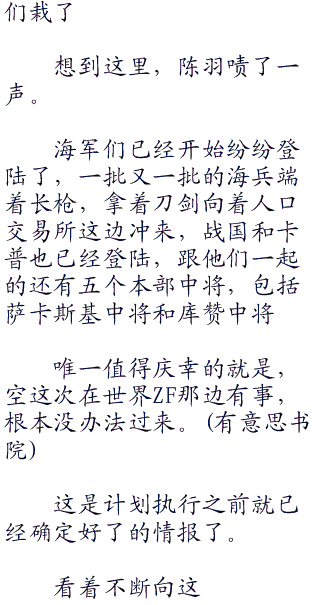 们栽了
想到这里，陈羽啧了一
声。
海军们已经开始纷纷登
陆了，一批又一批的海兵端
着长枪，拿着刀剑向着人口
交易所这边冲来，战国和卡
普也已经登陆，跟他们一起
的还有五个本部中将，包括
萨卡斯基中将和库赞中将
唯一值得庆幸的就是，
空这次在世界ZF那边有事，
根本没办法过来。(有意思书
院)
这是计划执行之前就已
经确定好了的情报了。
看着不断向这